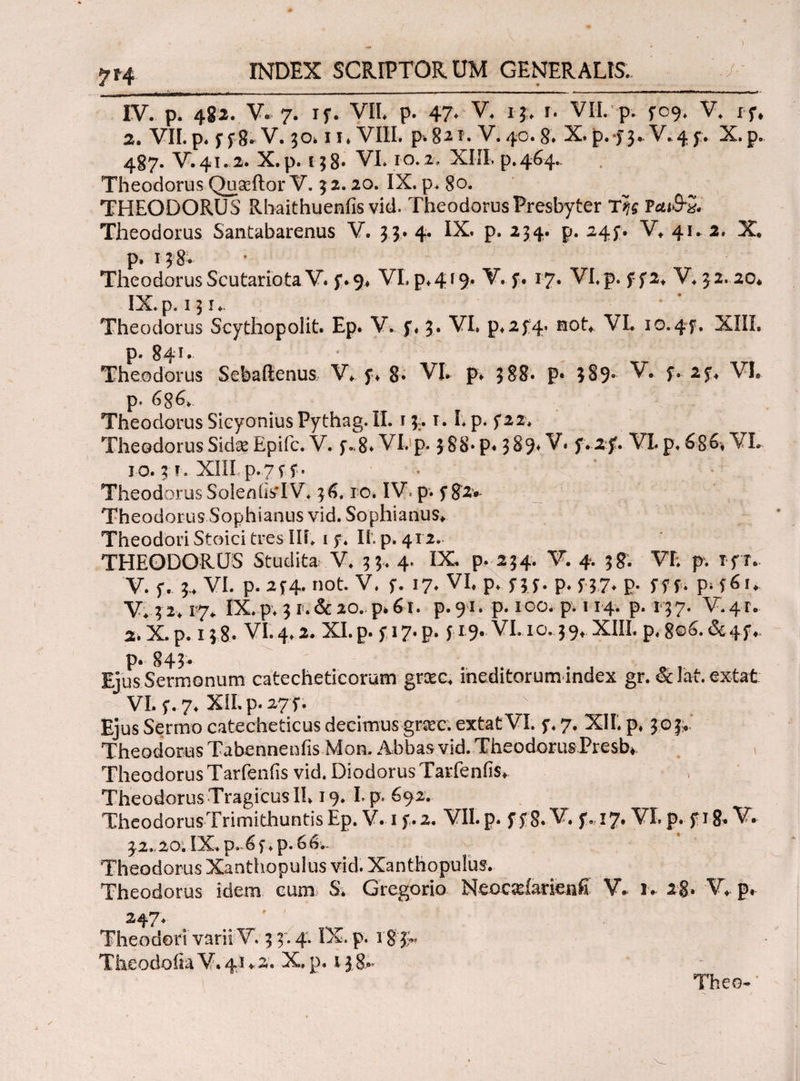 714 INDEX SCRIPTORUM GENERALIS.
IV. p. 482. V. 7. 15. VII. p. 47. V. 13. 1. VII. p. 509. V. 15.
2. VII. p. 558. V. 30. 11. VIII. p. 821. V. 40. 8. X. p. 53. V. 45. X. p.
487. V. 41. 2. X. p. 138. VI. 10. 2. XIII. p. 464.
Theodorus Quæſtor V. 32. 20. IX. p. 80.
THEODORUS Rhaithuenſis vid. Theodorus Presbyter Τῆς Ῥαιθῦ.
Theodorus Santabarenus V. 33. 4. IX. p. 234. p. 245. V. 41. 2. X.
p. 138.
Theodorus Scutariota V. 5. 9. VI. p. 419. V. 5. 17. VI. p. 552. V. 32. 20.
IX. p. 131.
Theodorus Scythopolit. Ep. V. 5. 3. VI. p. 254. not. VI. 10. 45. XIII.
p. 841.
Theodorus Sebaſtenus V. 5. 8. VI. p. 388. p. 389. V. 5. 25. VI.
p. 686.
Theodorus Sicyonius Pythag. II. 13. 1. I. p. 522.
Theodorus Sidæ Epiſc. V. 5. 8. VI. p. 388. p. 389. V. 5. 25. VI. p. 686. VI.
10. 31. XIII p. 755.
Theodorus Solenſis IV. 36. 10. IV. p. 582.
Theodorus Sophianus vid. Sophianus.
Theodori Stoici tres III. 15. II. p. 412.
THEODORUS Studita V. 33. 4. IX. p. 234. V. 4. 38. VI. p. 151.
V. 5. 3. VI. p. 254. not. V. 5. 17. VI. p. 535. p. 537. p. 555. p. 561.
V. 32. 17. IX. p. 31. & 20. p. 61. p. 91. p. 100. p. 114. p. 137. V. 41.
2. X. p. 138. VI. 4. 2. XI. p. 517. p. 519. VI. 10. 39. XIII. p. 806. & 45.
p. 843.
Ejus Sermonum catecheticorum græc. ineditorum index gr. & lat. extat
VI. 5. 7. XII. p. 275.
Ejus Sermo catecheticus decimus græc. extat VI. 5. 7. XII. p. 303.
Theodorus Tabennenſis Mon. Abbas vid. Theodorus Presb.
Theodorus Tarſenſis vid. Diodorus Tarſenſis.
Theodorus Tragicus II. 19. I. p. 692.
Theodorus Trimithuntis Ep. V. 15. 2. VII. p. 558. V. 5. 17. VI. p. 518. V.
32. 20. IX. p. 65. p. 66.
Theodorus Xanthopulus vid. Xanthopulus.
Theodorus idem cum S. Gregorio Neocæſarienſi V. 1. 28. V. p.
247.
Theodori varii V. 33. 4. IX. p. 183.
Theodoſia V. 41. 2. X. p. 138.
Theo-